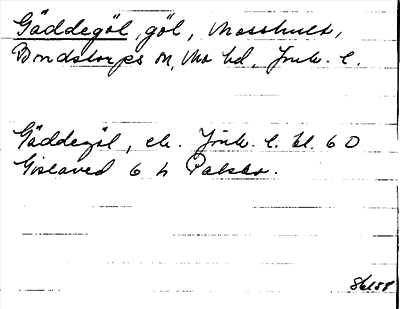 Gäddegöl, göl, Mosshult,
Bondstorps sn, Mo hd, Jönk. l.
Gäddegöl, ek. Jönk. l. bl. 6 D
Gislaved 6 h